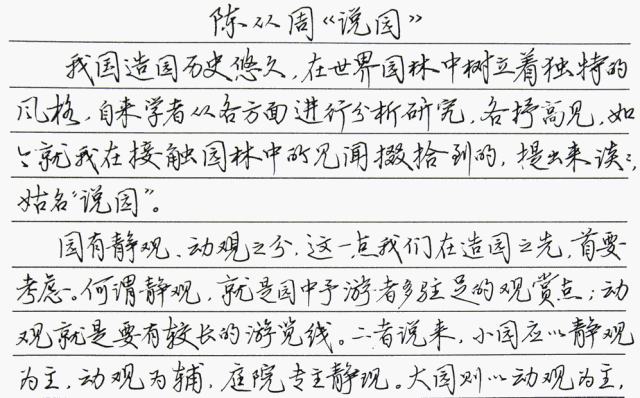 陈从周《说园》
我国造园历史悠久，在世界园林中树立着独特的
风格，自来学者从各方面进行分析研究，各抒高见，如
今就我在接触园林中所见闻掇拾到的，提出来谈谈，
姑名“说园”。
园有静观、动观之分，这一点我们在造园之先，首要
考虑。何谓静观，就是园中予游者多驻足的观赏点；动
观就是要有较长的游览线。二者说来，小园应以静观
为主，动观为辅，庭院专主静观。大园则以动观为主，